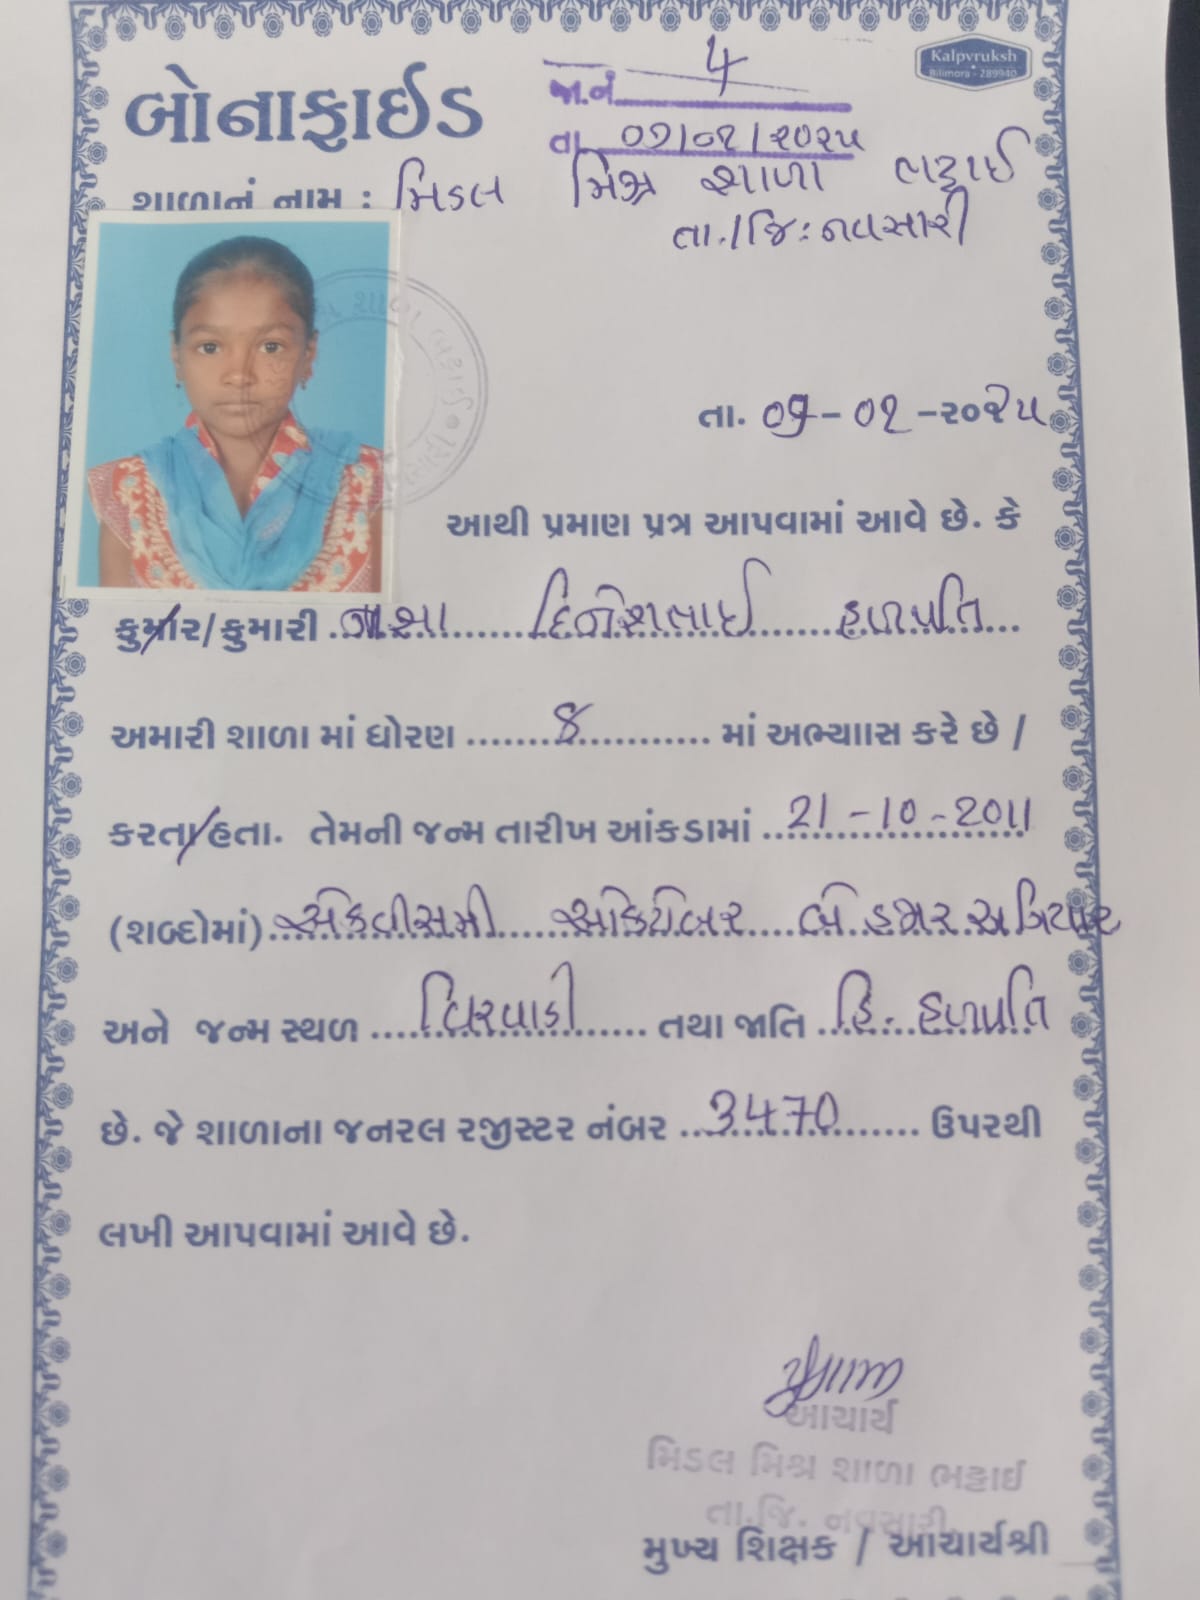 Kalpvruksh
Bilimora - 289940
બોનાફાઈડ
જા.નં. 4
તા. ૦૭/૦૧/૨૦૨૫
શાળાનું નામ : મિડલ મિશ્ર શાળા ભટ્ટાઈ
તા./જિ:નવસારી
તા. ૦૭-૦૧-૨૦૨૫
આથી પ્રમાણ પ્રત્ર આપવામાં આવે છે. કે
કુમાર/કુમારી દિનેશભાઈ હળપતિ
અમારી શાળા માં ધોરણ 8 માં અભ્યાાસ કરે છે /
કરતા/હતા. તેમની જન્મ તારીખ આંકડામાં 21-10-2011
(શબ્દોમાં) એકવીસમી ઓકટોબર બે હજાર અગિયાર
અને જન્મ સ્થળ વિરવાડી તથા જાતિ હિ. હળપતિ
છે. જે શાળાના જનરલ રજીસ્ટર નંબર 3470 ઉપરથી
લખી આપવામાં આવે છે.
આચાર્ય
મિડલ મિશ્ર શાળા ભટ્ટાઈ
તા.જિ. નવસારી.
મુખ્ય શિક્ષક / આચાર્યશ્રી